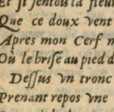 Et ſi ſentou la fleur
Que ce doux vent
Apres mon Cerf
Ou le briſe au pied d
Deſſus vn tronc
Prenant repos vne